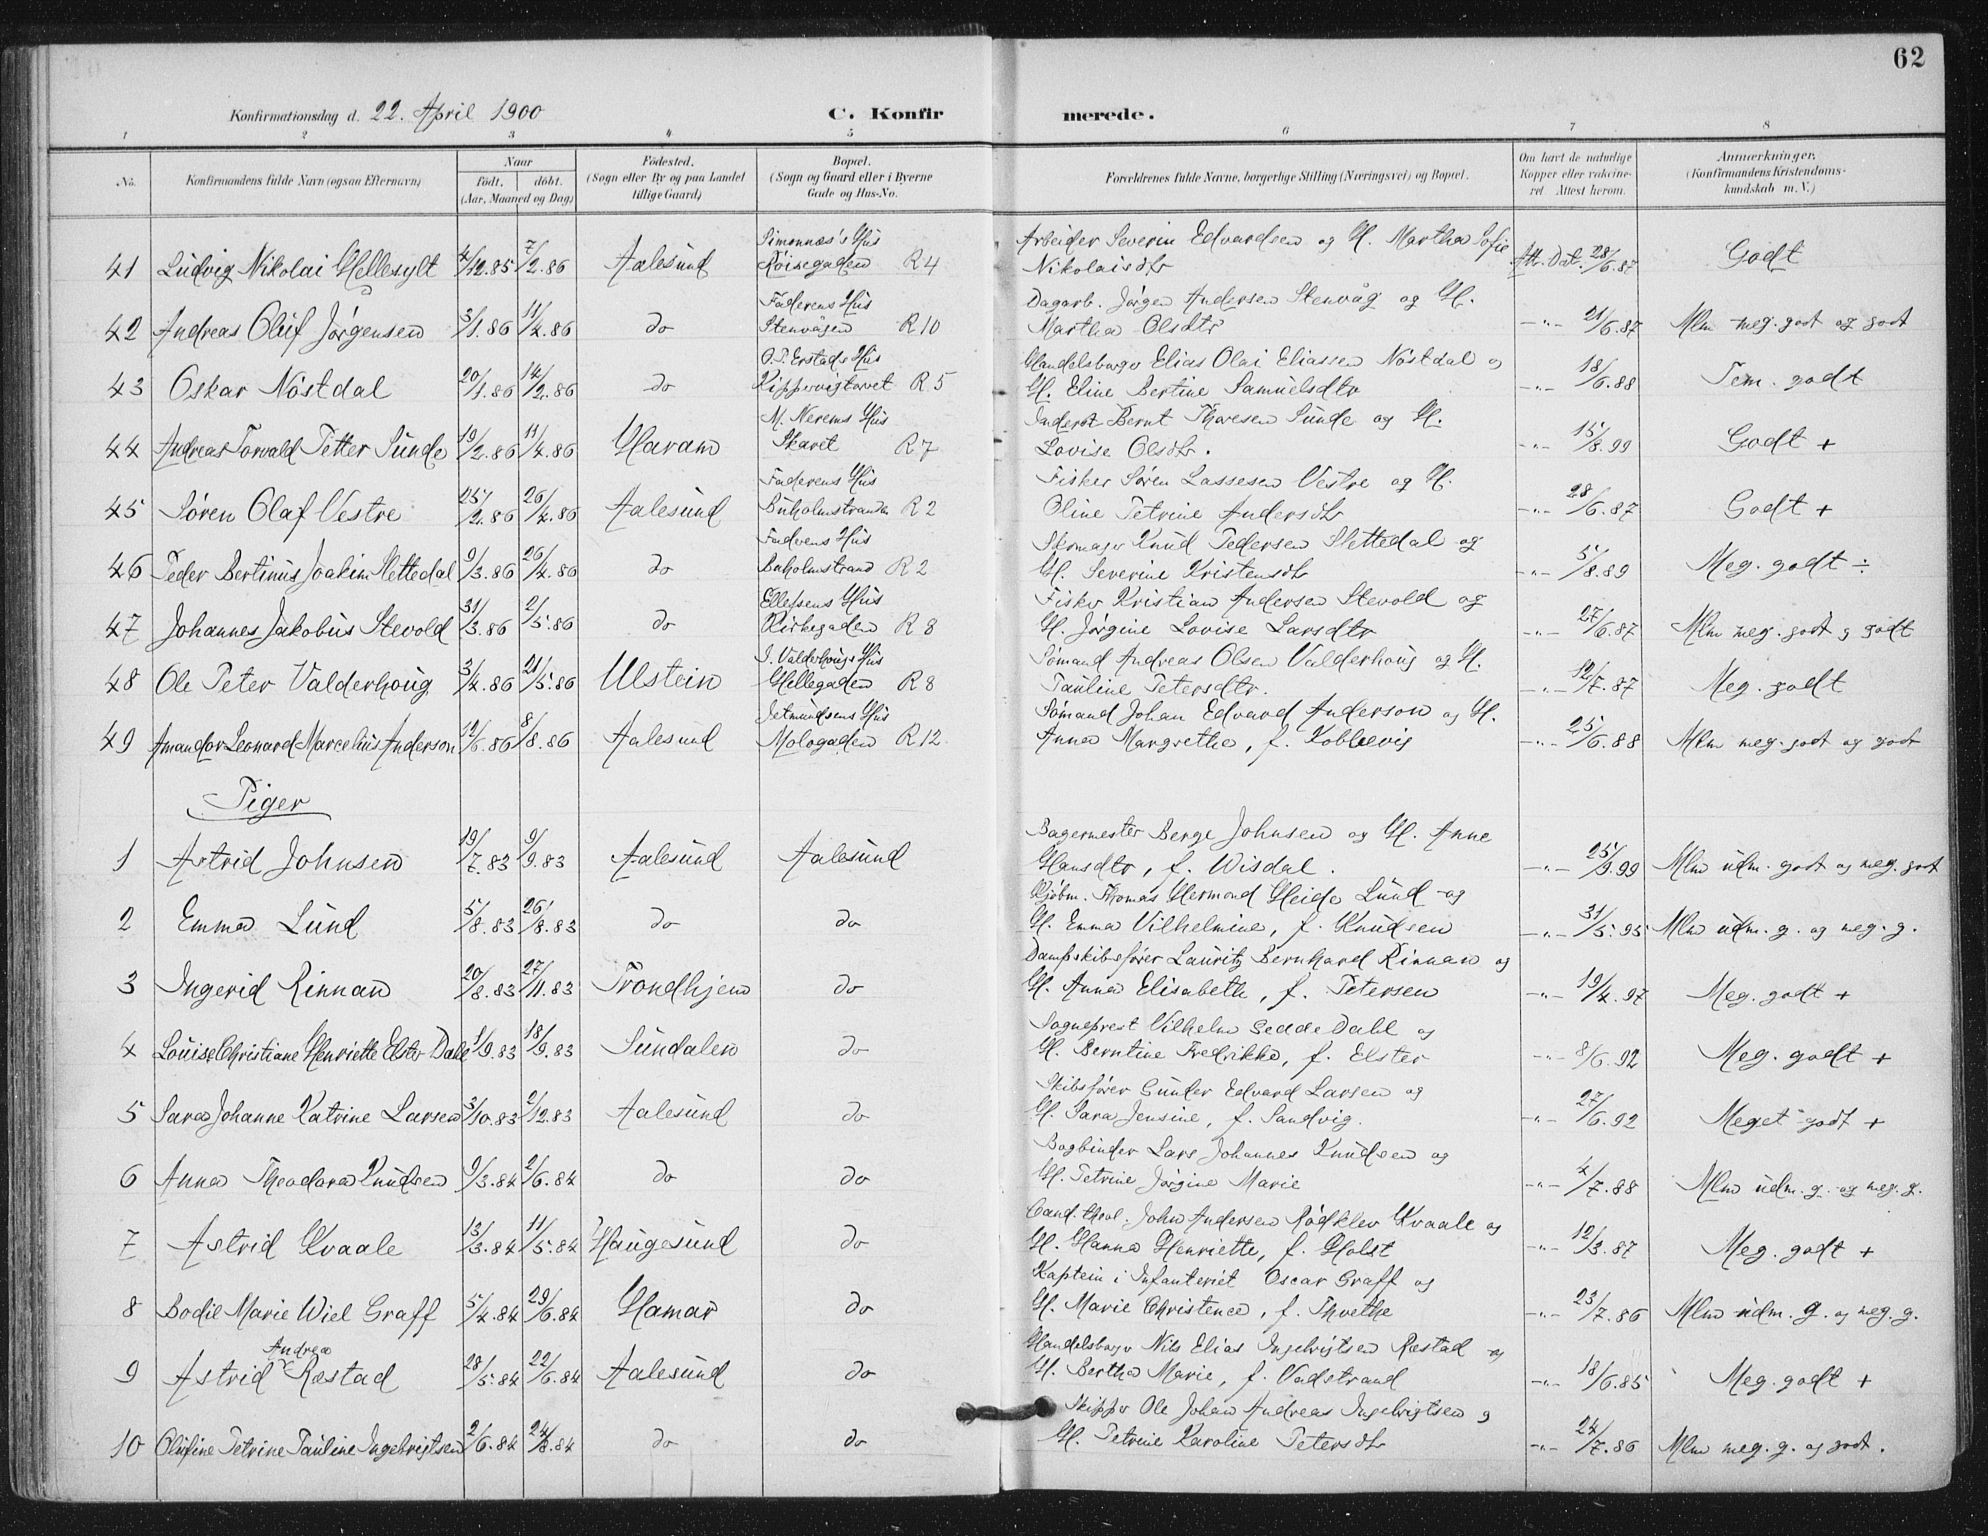 62
Konfirmationsdag d. 22. April 1900
C. Konfirmerede.
1 2 3 4 5 6 7 8
No.
Konfirmandens fulde Navn (ogsaa Efternavn)
Naar
födt. döbt.
(Aar, Maaned og Dag)
Födested.
(Sogn eller By og paa Landet
tillige Gaard)
Bopæl.
(Sogn og Gaard eller i Byerne
Gade og Hus-No.
Forældrenes fulde Navne, borgerlige Stilling (Næringsvei) og Bopæl.
Om havt de naturlige
Kopper eller vakcine-
ret Attest herom.
Anmærkninger.
(Konfirmandens Kristendoms-
kundskab m. V.)
Simonnæs's Hus Arbeider Severin Edvardsen og H. Martha Sofie
41 Ludvig Nikolai Hellesylt 4/12.85 7/2.86 Aalesund Röisegaden R4 Nikolaisdtr Att. Dat. 28/6.87 Godt
Faderens Hus Dagarb. Jörgen Andersen Stenvåg og H.
42 Andreas Oluf Jörgensen 3/1.86 11/4.86 do Stenvågen R10 Martha Olsdtr -"- 21/6.87 Mlm meg. godt og godt
O. P. Erstads Hus Handelsborger Elias Olai Eliassen Nöstdal o
43 Oskar Nöstdal 20/1.86 14/2.86 do Kippervigtorvet R5 H. Eline Bertine Samuelsdtr -"- 18/6.88 Tem. godt
M. Nerems Hus Inderst Bernt Thoresen Sunde og H.
44 Andreas Torvald Petter Sunde 19/2.86 11/4.86 Haram Skaret R7 Lovise Olsdtr. -"- 15/8.99 Godt +
Faderens Hus Fisker Sören Lassesen Vestre og H.
45 Sören Olaf Vestre 25/2.86 26/4.86 Aalesund Buholmstranden R2 Oline Petrine Andersdtr -"- 28/6.87 Godt +
Faderens Hus Skomager Knud Pedersen Slettedal og
46 Peder Bertinus Joakim Slettedal 9/3.86 26/4.86 do Buholmstrand R2 H. Severine Kristensdtr -"- 5/8.89 Meg. godt ÷
Ellefsens Hus Fisker Kristian Andersen Stevold og
47 Johannes Jakobus Stevold 31/3.86 2/5.86 do Kirkegaden R8 H. Jörgine Lovise Larsdtr -"- 27/6.87 Mlm meg. godt g godt
I. Valderhougs Hus Sömand Andreas Olsen Valderhoug og H.
48 Ole Peter Valderhoug 3/4.86 21/5.86 Ulstein Hellegaden R8 Pauline Petersdtr. -"- 12/7.87 Meg. godt
Jetmundsens Hus Sömand Johan Edvard Anderson og H.
49 Amandor Leonard Marcelius Anderson 12/6.86 8/8.86 Aalesund Mologaden R12 Anna Margrethe, f. Koblevig -"- 25/6.88 Mlm meg. godt og godt
Piger
Bagermester Berge Johnsen og H. Anne
1 Astrid Johnsen 19/7.83 9/9.83 Aalesund Aalesund Hansdtr, f. Wisdal. -"- 25/9.99 Mlm udm. godt og meg. godt
Kjöbm. Thomas Hermond Heide Lund og
2 Emma Lund 5/8.83 26/8.83 do do H. Emma Vilhelmine, f. Knudsen -"- 31/5.95 Mlm udm. g. og meg. g.
Dampskibsförer Lauritz Bernhard Rinnan og
3 Ingerid Rinnan 20/8.83 27/11.83 Trondhjem do H. Anna Elisabeth, f. Petersen -"- 19/4.97 Meg. godt +
Sogneprest Vilhelm Gedde Dahl og
4 Louise Christiane Henriette Elster Dahl 1/9.83 18/9.83 Sundalen do H. Berntine Fredrikke, f. Elster -"- 8/6.92 Meg. godt +
Skibsförer Gunder Edvard Larsen og
5 Sara Johanne Katrine Larsen 3/10.83 2/12.83 Aalesund do H. Sara Jensine, f. Sandvig. -"- 27/6.92 Meget godt +
Bogbinder Lars Johannes Knudsen og
6 Anna Theodora Knudsen 9/3.84 2/6.84 do do H. Petrine Jörgine Marie -"- 4/7.88 Mlm udm. g. og meg. g.
Cand. theol. John Andersen Rödklev Kvaale og
7 Astrid Kvaale 13/3.84 11/5.84 Haugesund do H. Hanna Henriette, f. Holst -"- 12/3.87 Meg. godt +
Kaptein i Infanteriet Oscar Graff og
8 Bodil Marie Wiel Graff 5/4.84 29/6.84 Hamar do H. Marie Christence, f. Thvethe -"- 23/7.86 Mlm udm. g. og meg. g.
Andrea Handelsborger Nils Elias Ingebrigtsen Ræstad og
9 Astrid Ræstad 28/5.84 22/6.84 Aalesund do H. Bertha Marie, f. Vadstrand -"- 18/6.85 Meg. godt +
Skipper Ole Johan Andreas Ingebrigtsen g
10 Olufine Petrine Pauline Ingebrigtsen 2/6.84 24/8.84 do do H. Petrine Karoline Petersdtr -"- 24/7.86 Mlm meg. g. og godt.